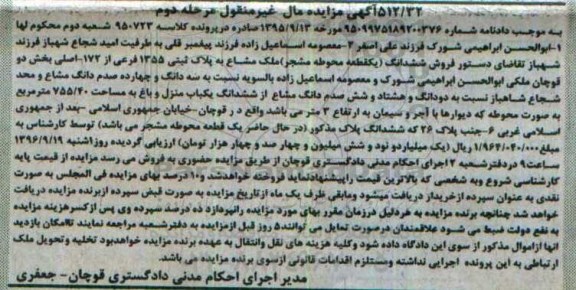 ۵۱۲/۳۲آگهی مزایده مال غیرمنقول مرحله دوم
به موجب دادنامه شماره ۹۵۰۹۹۷۵۱۸۹۲۰۰۳۷۶ مورخه ۱۳۹۵/۹/۱۳ صادره درپرونده کلاسه ۹۵۰۷۲۳ شعبه دوم محکوم لها
۱-ابوالحسن ابراهیمی شورک فرزند علی اصغر ۲-معصومه اسماعیل زاده فرزند پیغمبر قلی به طرفیت امید شجاع شهباز فرزند
شهباز تقاضای دستور فروش ششدانگ (یکقطعه محوطه مشجر)ملک مشاع به پلاک ثبتی ۱۳۵۵ فرعی از ۱۷۲-اصلی بخش دو
قوچان ملکی ابوالحسن ابراهیمی شورک و معصومه اسماعیل زاده بالسویه نسبت به سه دانگ و چهارده صدم دانگ مشاع و محد
شجاع شاهباز نسبت به دودانگ و هشتاد و شش صدم دانگ مشاع از ششدانگ یکباب منزل و باغ به مساحت ۷۵۵/۴۰ مترمربع
به صورت محوطه که دیوارها با آجر و سیمان به ارتفاع ۳ متر می باشد واقع در قوچان-خیابان جمهوری اسلامی -بعد از جمهوری
اسلامی غربی ۶-جنب پلاک ۲۶ که ششدانگ پلاک مذکور (در حال حاضر یک قطعه محوطه مشجر می باشد) توسط کارشناس به
مبلغ ۱/۹۶۴/۰۴۰/۰۰۰ ریال (یک میلیاردو نود و شش میلیون و چهار صد و چهار هزار تومان) ارزیابی گردیده روزاشنبه ۱۳۹۶/۹/۱۹
ساعت۹ دردفترشعبه ۲ اجرای احکام مدنی دادگستری قوچان از طریق مزایده حضوری به فروش می رسد مزایده از قیمت پایه
کارشناسی شروع وبه شخصی که بالاترین قیمت راپیشنهادنماید فروخته خواهدشد. ۱۰ درصد بهای مزایده فی المجلس به صورت
نقدی به عنوان سپرده ازخریدار دریافت میشود ومابقی ظرف یک ماه ازتاریخ مزایده به صورت قبض سپرده ازبرنده مزایده دریافت
خواهد شد چنانچه برنده مزایده به هردلیل درزمان مقرر بهای مورد مزایده رانپردازد ده درصد سپرده وی پس از کسرهزینه مزایده
به نفع دولت ضبط می شود علاقمندان درصورت تمایل می توانند۵ روز قبل ازمزایده به دفترشعبه مراجعه نمایند تاامکان بازدید
آنها ازاموال مذکور از سوی این دادگاه داده شود وکلیه هزینه های نقل وانتقال به عهده برنده مزایده خواهدبود تخلیه وتحویل ملک
ارتباطی به این پرونده اجرایی نداشته ومستلزم اقدامات قانونی ازسوی برنده مزایده می باشد.
مدیر اجرای احکام مدنی دادگستری قوچان- جعفری